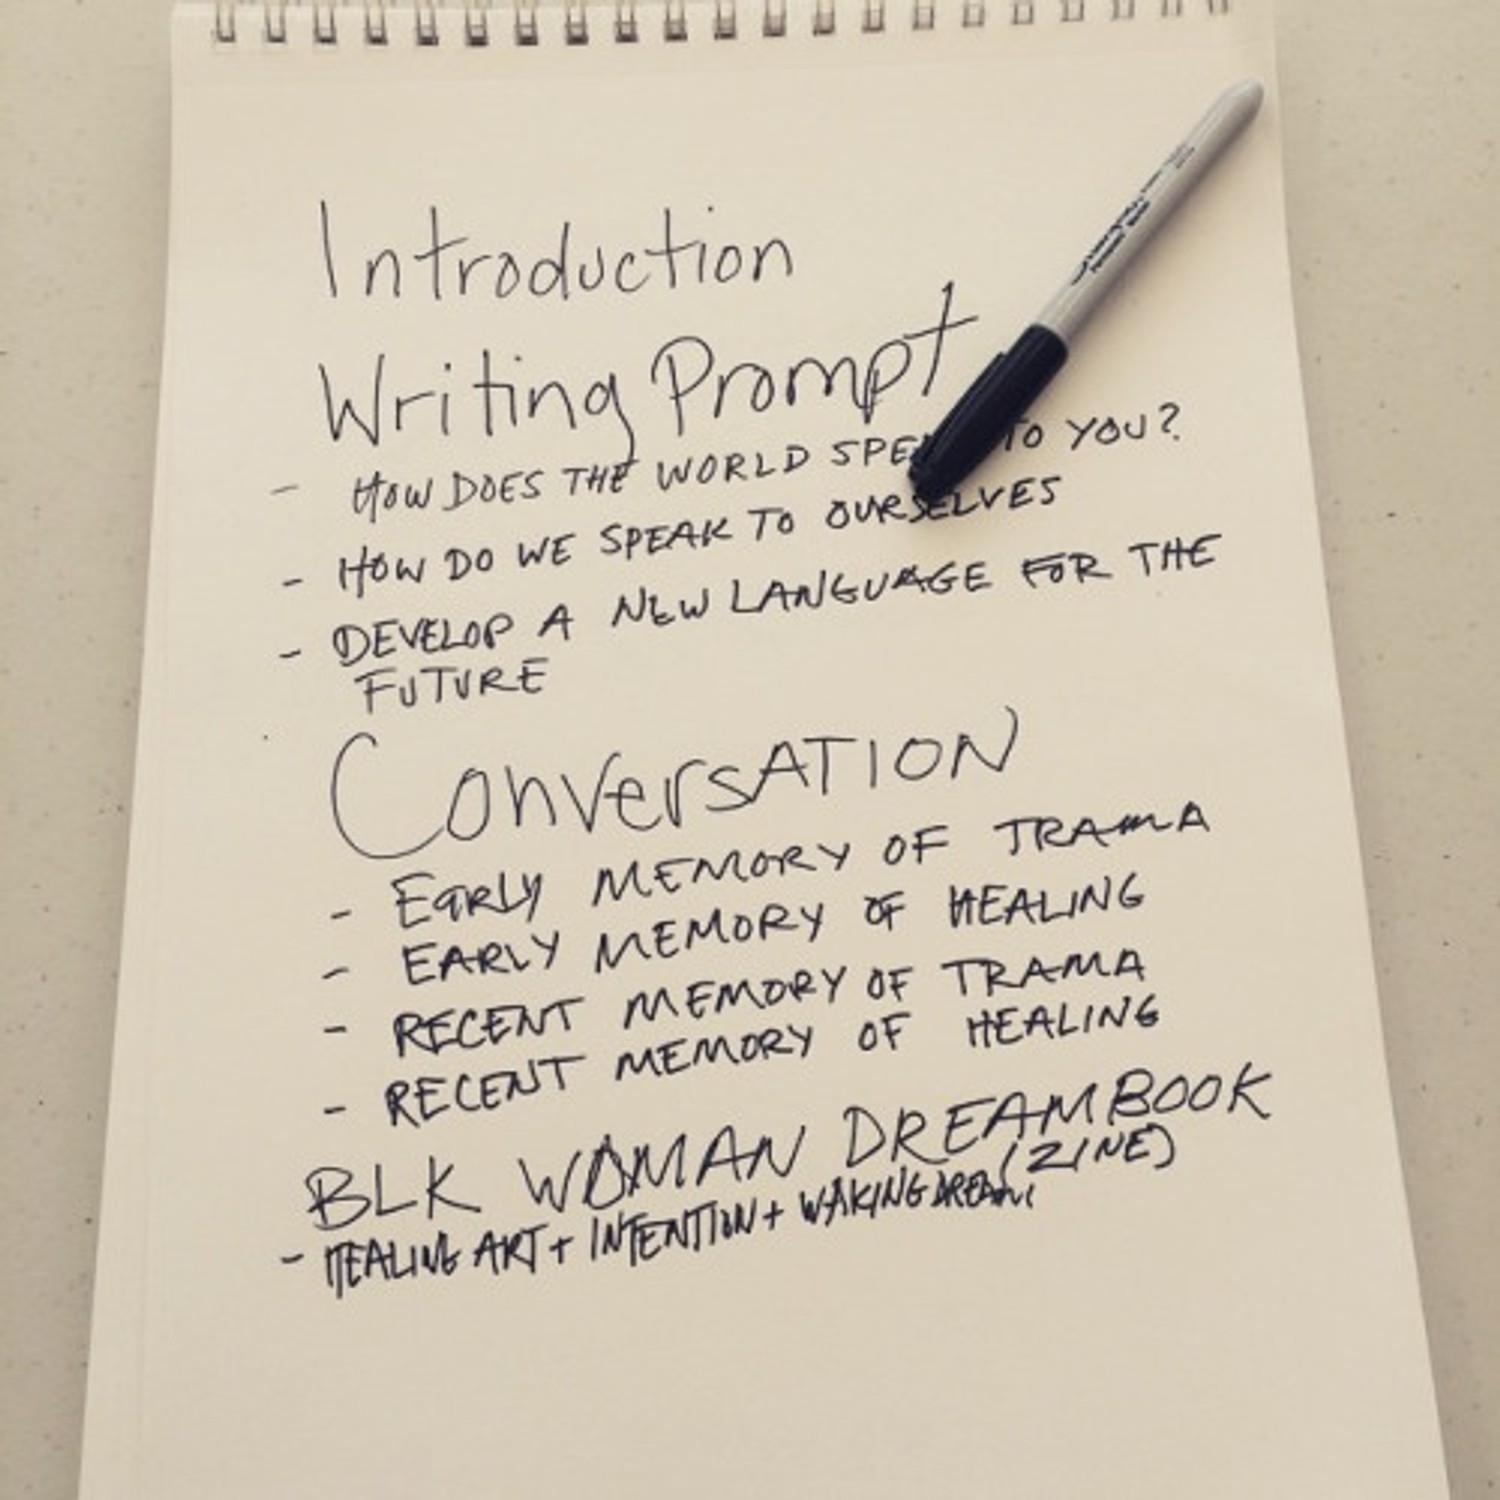 Introduction
Writing Prompt
- HOW DOES THE WORLD SPE TO YOU?
- HOW DO WE SPEAK TO OURSELVES
- DEVELOP A NEW LANGUAGE FOR THE
FUTURE
ConversATION
- EARLY MEMORY OF TRAMA
- EARLY MEMORY OF HEALING
- RECENT MEMORY OF TRAMA
- RECENT MEMORY OF HEALING
BLK WOMAN DREAMBOOK
(ZINE)
- HEALING ART + INTENTION + WAKING DREAM